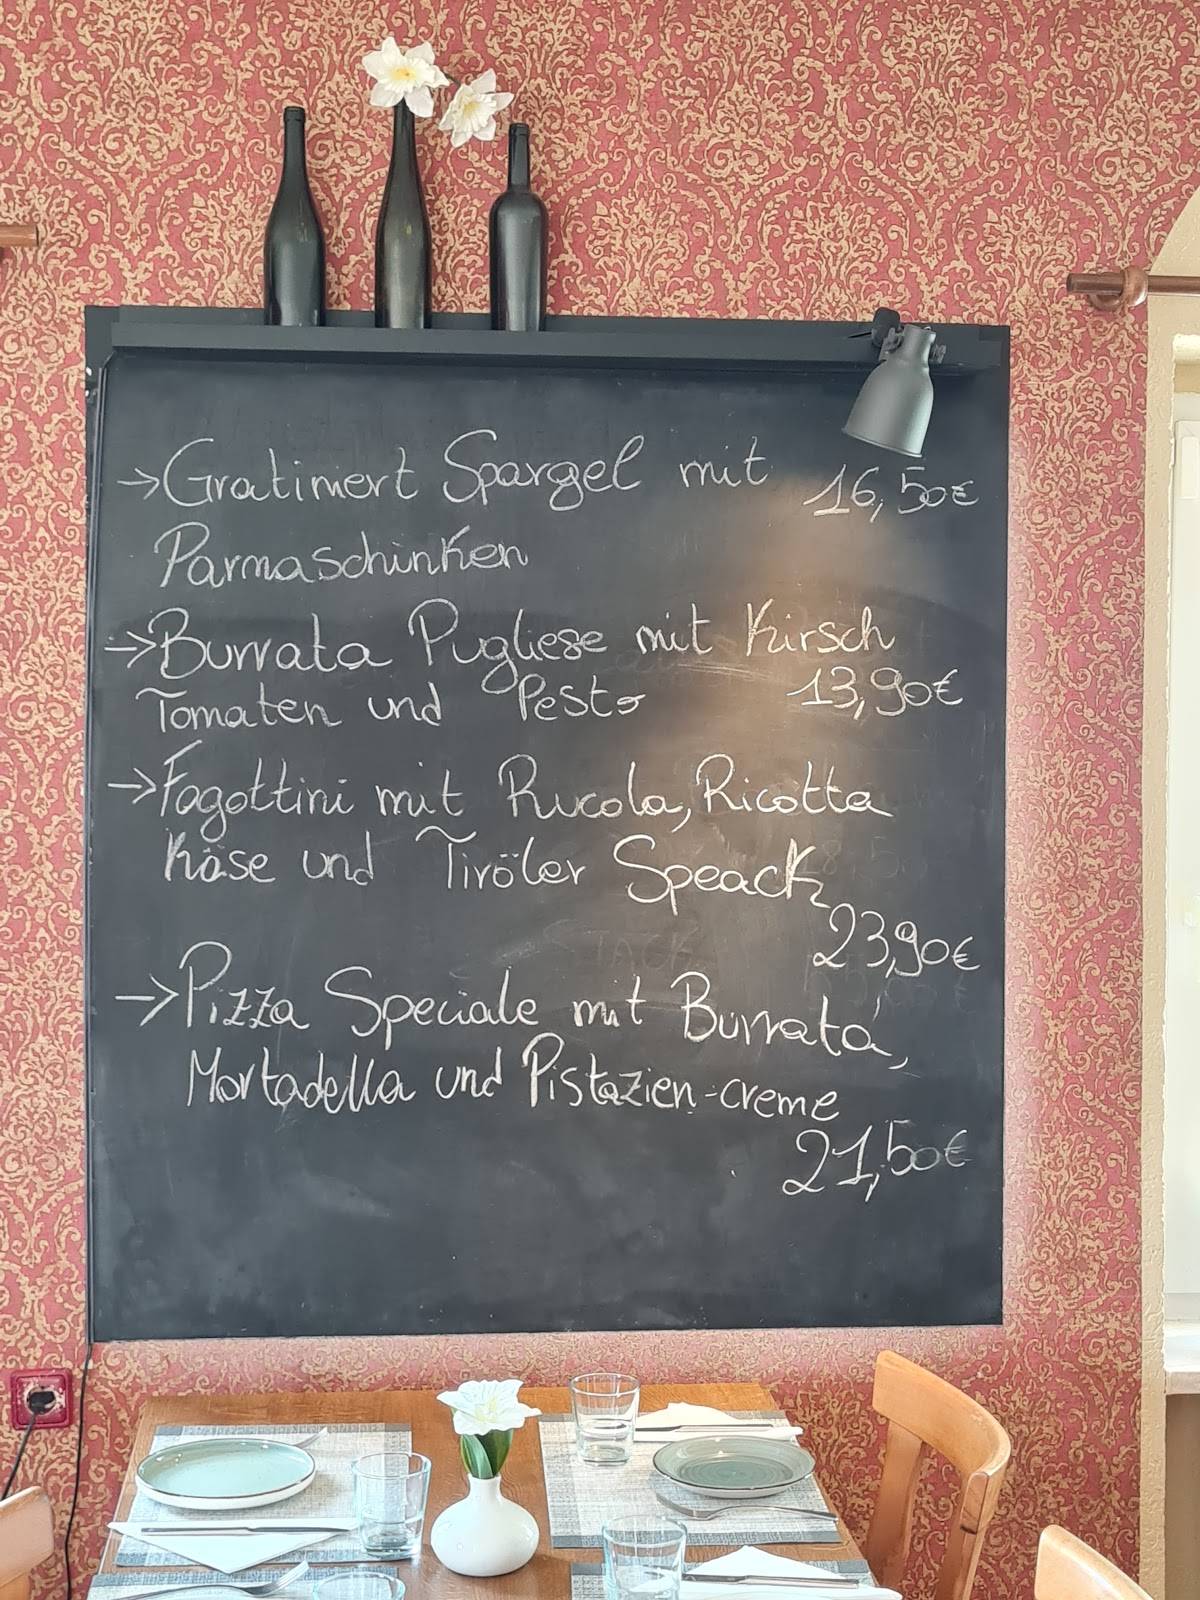 →Gratiniert Spargel mit 16,50€
Parmaschinken
→Burrata Pugliese mit Kirsch
Tomaten und Pesto 13,90€
→Fagottini mit Rucola, Ricotta
Käse und Tiröler Speack
23,90€
→Pizza Speciale mit Burrata,
Mortadella und Pistazien-creme
21,50€